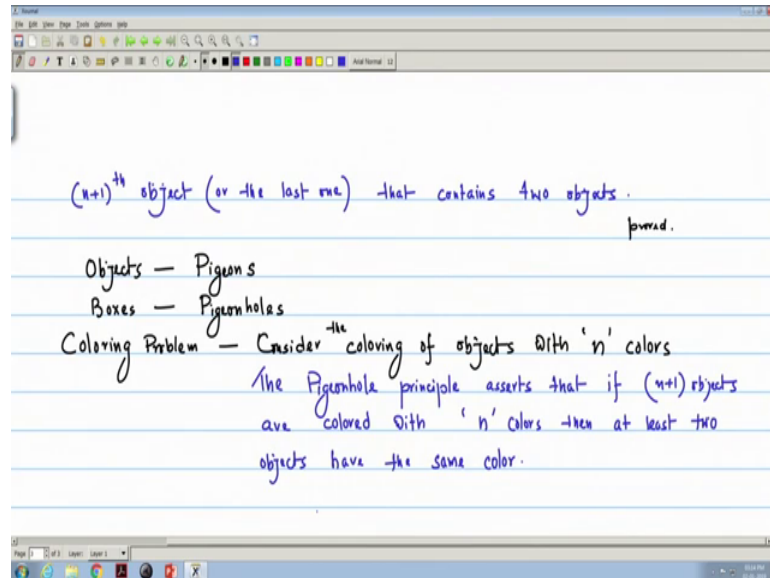 Journal
File Edit View Page Tools Options Help
Arial Normal 12
(n+1)th object (or the last one) that contains two objects.
proved.
Objects — Pigeons
Boxes — Pigeonholes
Coloring Problem — Consider the coloring of objects with 'n' colors
The Pigeonhole principle asserts that if (n+1) objects
are colored with 'n' colors then at least two
objects have the same color.
Page 3 of 3 Layer: Layer 1